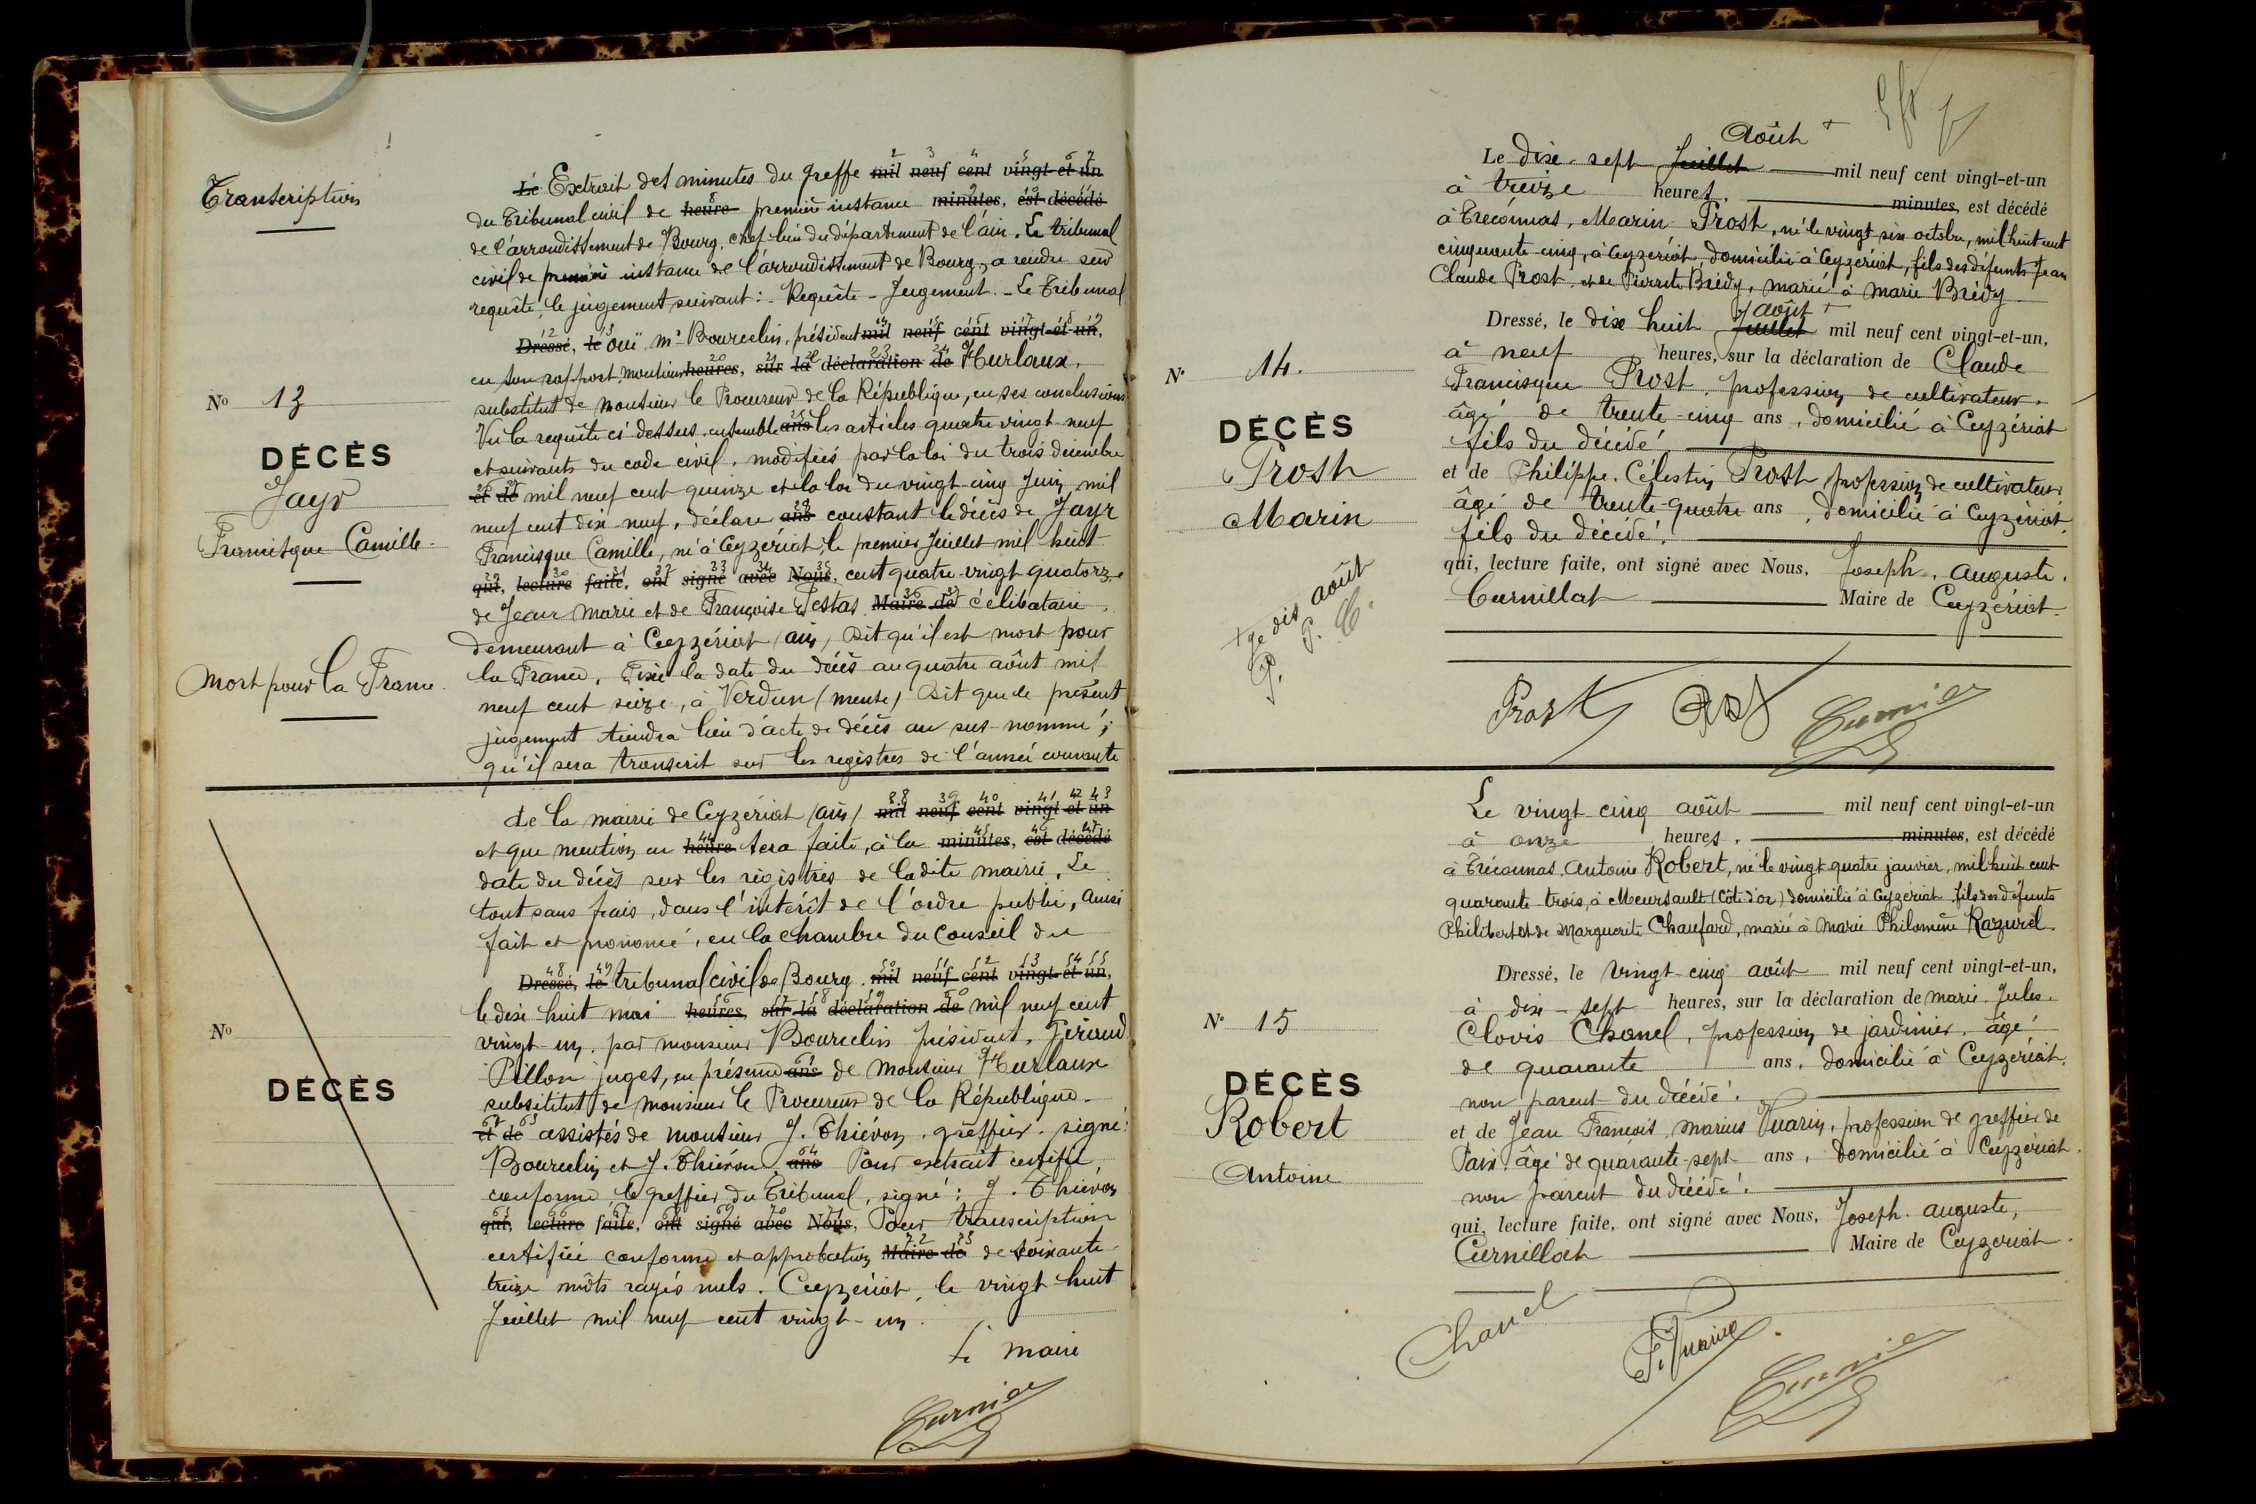 Transcription
Le Extrait des minutes du greffe mil neuf cent vingt-et-un
du Tribunal civil de heure première instance minutes, est décédé
de l'arrondissement de Bourg, chef-lieu du département de l'ain. Le tribunal
civil de première instance de l'arrondissement de Bourg, a rendu sur
requête, le jugement suivant : Requête - Jugement - Le Tribunal
Dressé, le ouï Mr Bourcelin, président mil neuf cent vingt-et-un,
en son rapport, monsieur heures, sur la déclaration de Hurlaux,
substitut de monsieur le Procureur de la République, en ses conclusions
Vu la requête ci dessus, ensemble ans les articles quatre vingt neuf
et suivants du code civil, modifiés par la loi du trois décembre
et de mil neuf cent quinze et la loi du vingt cinq Juin mil
neuf cent dix neuf, déclare ans constant le décès de Jayr
Francisque Camille, né à Ceyzériat, le premier Juillet mil huit
qui, lecture faite, ont signé avec Nous, cent quatre-vingt quatorze
de Jean Marie et de Françoise Testas Maire de célibataire
demeurant à Ceyzériat (ain) Dit qu'il est mort pour
la France, Fixe la date du décès au quatre août mil
neuf cent seize, à Verdun (meuse) Dit que le présent
jugement tiendra lieu d'acte de décès au sus-nommé ;
qu'il sera transcrit sur les registres de l'année courante
No 13
DÉCÈS
Jayr
Francisque Camille
Mort pour la France
de la mairie de Ceyzériat (ain) mil neuf cent vingt et un
et que mention en heure sera faite, à la minutes, est décédé
date du décès sur les registres de ladite mairie. Le
tout sans frais, dans l'intérêt de l'ordre public, ainsi
fait et prononcé, en la chambre du Conseil du
Dressé, le tribunal civil de Bourg. mil neuf cent vingt-et-un,
le dix huit mai heures, sur la déclaration de mil neuf cent
vingt-un, par monsieur Bourcelin président, Feraud
Pillon juges, en présence ans de Monsieur Hurlaux
substitut de monsieur le Procureur de la République
et de assistés de monsieur J. Thiévon, greffier. signé :
Bourcelin et J. Thiévon ans Pour extrait certifié
conforme, le greffier du Tribunal, signé : J. Thiévon
qui, lecture faite, ont signé avec Nous, Pour transcription
certifiée conforme et approbation Maire de de soixante
treize mots rayés nuls. Ceyzériat, le vingt huit
Juillet mil neuf cent vingt-un.
Le maire
No
DÉCÈS
Août +
Le dix-sept Juillet mil neuf cent vingt-et-un
à treize heures, minutes, est décédé
à Tréconnas, Marin Prost, né le vingt six octobre, mil huit cent
cinquante cinq, à Ceyzériat, domicilié à Ceyzériat, fils des défunts Jean
Claude Prost et de Pierrette Brédy, marié à Marie Brédy
août +
Dressé, le dix huit Juillet mil neuf cent vingt-et-un,
à neuf heures, sur la déclaration de Claude
Francisque Prost, profession de cultivateur,
âgé de trente-cinq ans, domicilié à Ceyzériat
fils du décédé,
et de Philippe, Célestin Prost profession de cultivateur
âgé de trente-quatre ans, domicilié à Ceyzériat
fils du décédé,
qui, lecture faite, ont signé avec Nous, Joseph, Auguste,
Curnillat Maire de Ceyzériat
Prost
N° 14.
DÉCÈS
Prost
Marin
août
Le vingt cinq août mil neuf cent vingt-et-un
à onze heures, minutes, est décédé
à Tréconnas, Antoine Robert, né le vingt quatre janvier, mil huit cent
quarante trois, à Meursault (Côte d'or) domicilié à Ceyzériat, fils des défunts
Philibert et de Marguerite Chaufard, marié à Marie Philomène Razurel.
Dressé, le vingt-cinq août mil neuf cent vingt-et-un,
à dix-sept heures, sur la déclaration de Marie Jules
Clovis Chanel, profession de jardinier, âgé
de quarante ans, domicilié à Ceyzériat,
non parent du décédé.
et de Jean François Marius Vuarin, profession de greffier de
Paix, âgé de quarante-sept ans, domicilié à Ceyzériat.
non parent du décédé.
qui, lecture faite, ont signé avec Nous, Joseph Auguste,
Curnillat Maire de Ceyzériat.
Chanel
F. Vuarin
N° 15
DÉCÈS
Robert
Antoine